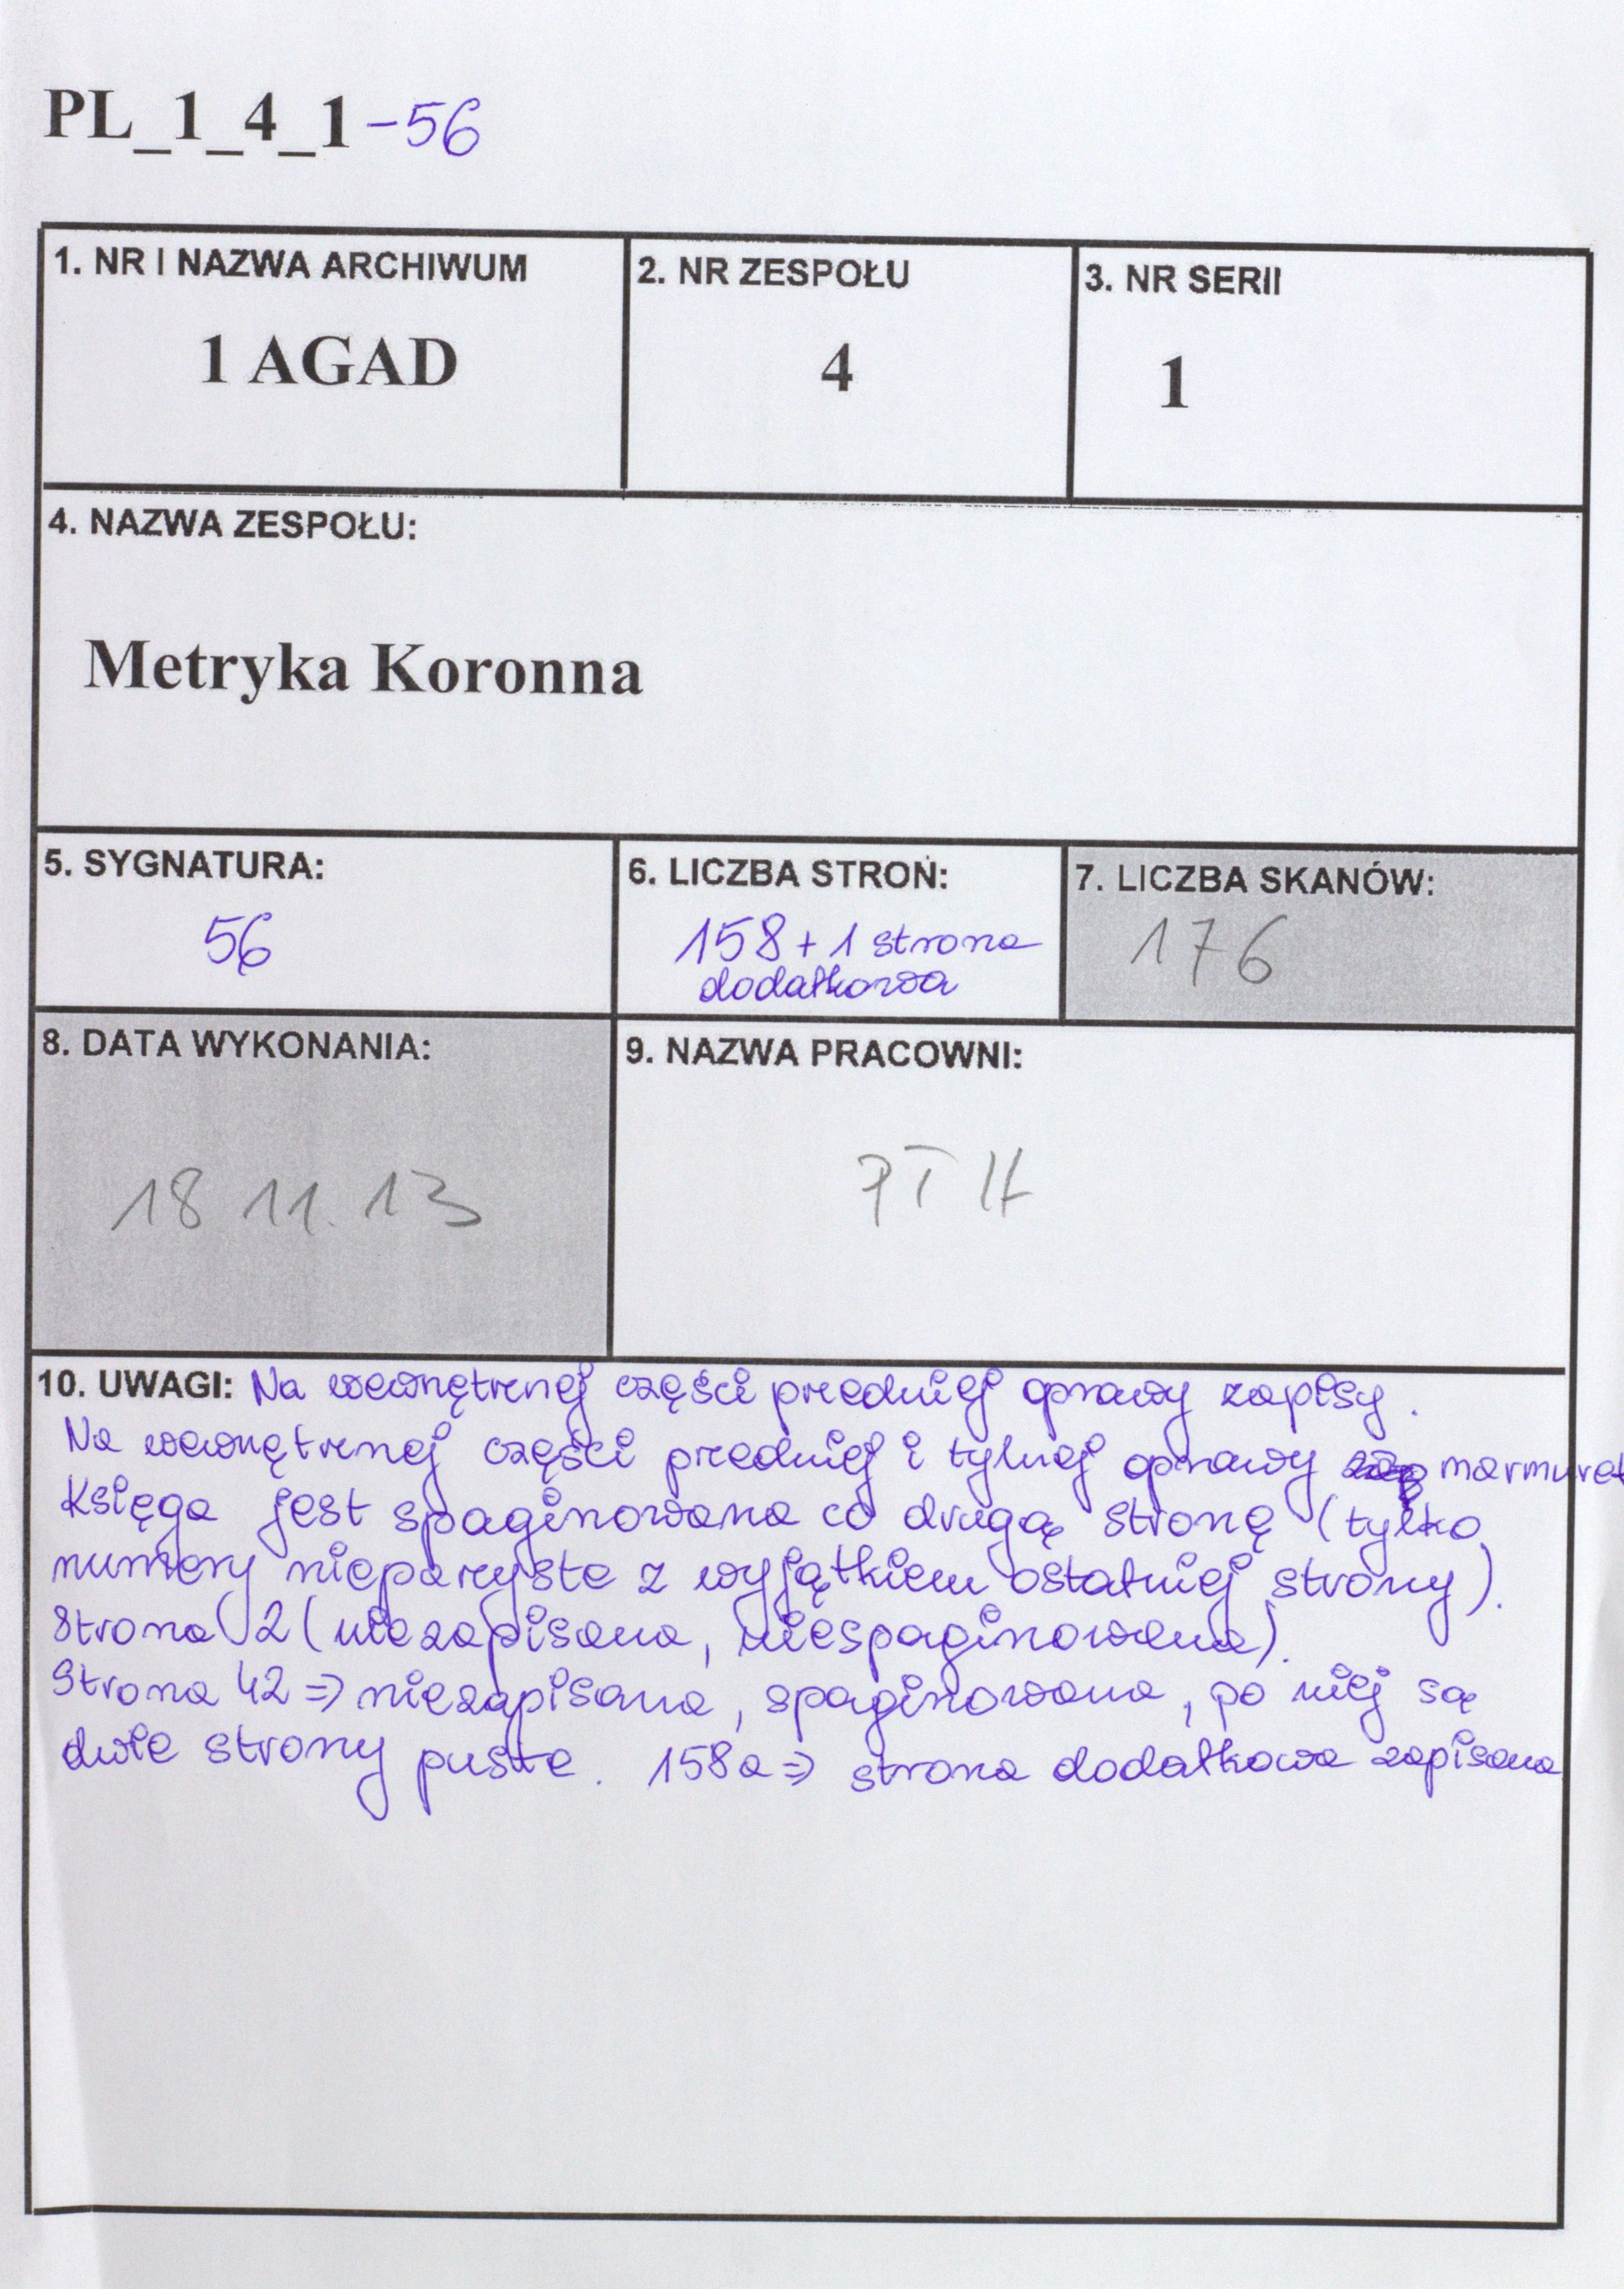 PL_1_4_1-56
1. NR I NAZWA ARCHIWUM
1 AGAD
2. NR ZESPOŁU
4
3. NR SERII
1
4. NAZWA ZESPOŁU:
Metryka Koronna
5. SYGNATURA:
56
6. LICZBA STRON:
158 + 1 strona
dodatkowa
7. LICZBA SKANÓW:
176
8. DATA WYKONANIA:
18 11. 13
9. NAZWA PRACOWNI:
10. UWAGI: Na wewnętrznej części przedniej oprawy zapisy.
Na wewnętrznej części przedniej i tylnej oprawy marmuret
Księga jest spaginowana co drugą stronę (tylko
numery nieparzyste z wyjątkiem ostatniej strony).
Strona 2 (niezapisana, niespaginowana).
Strona 42 => niezapisana, spaginowana, po niej są
dwie strony puste. 158a => strona dodatkowa zapisana